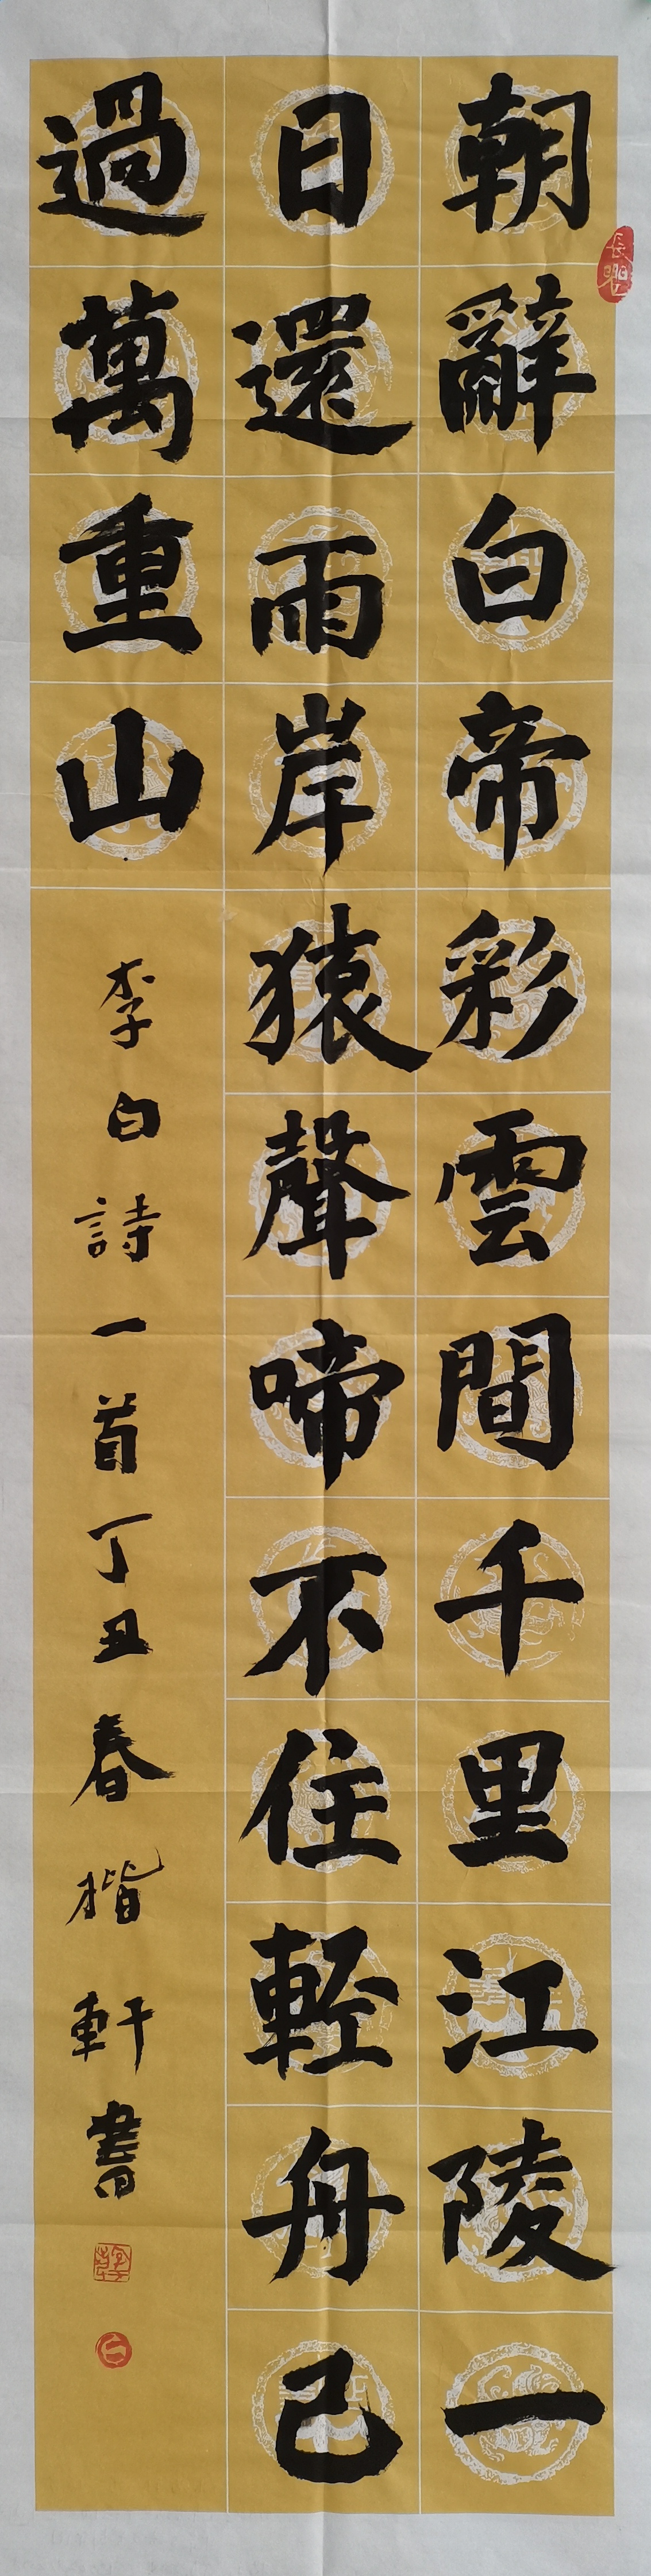 朝辭白帝彩雲間千里江陵一
日還雨岸猿聲啼不住輕舟己
過萬重山
李白詩一首丁丑春楷軒書